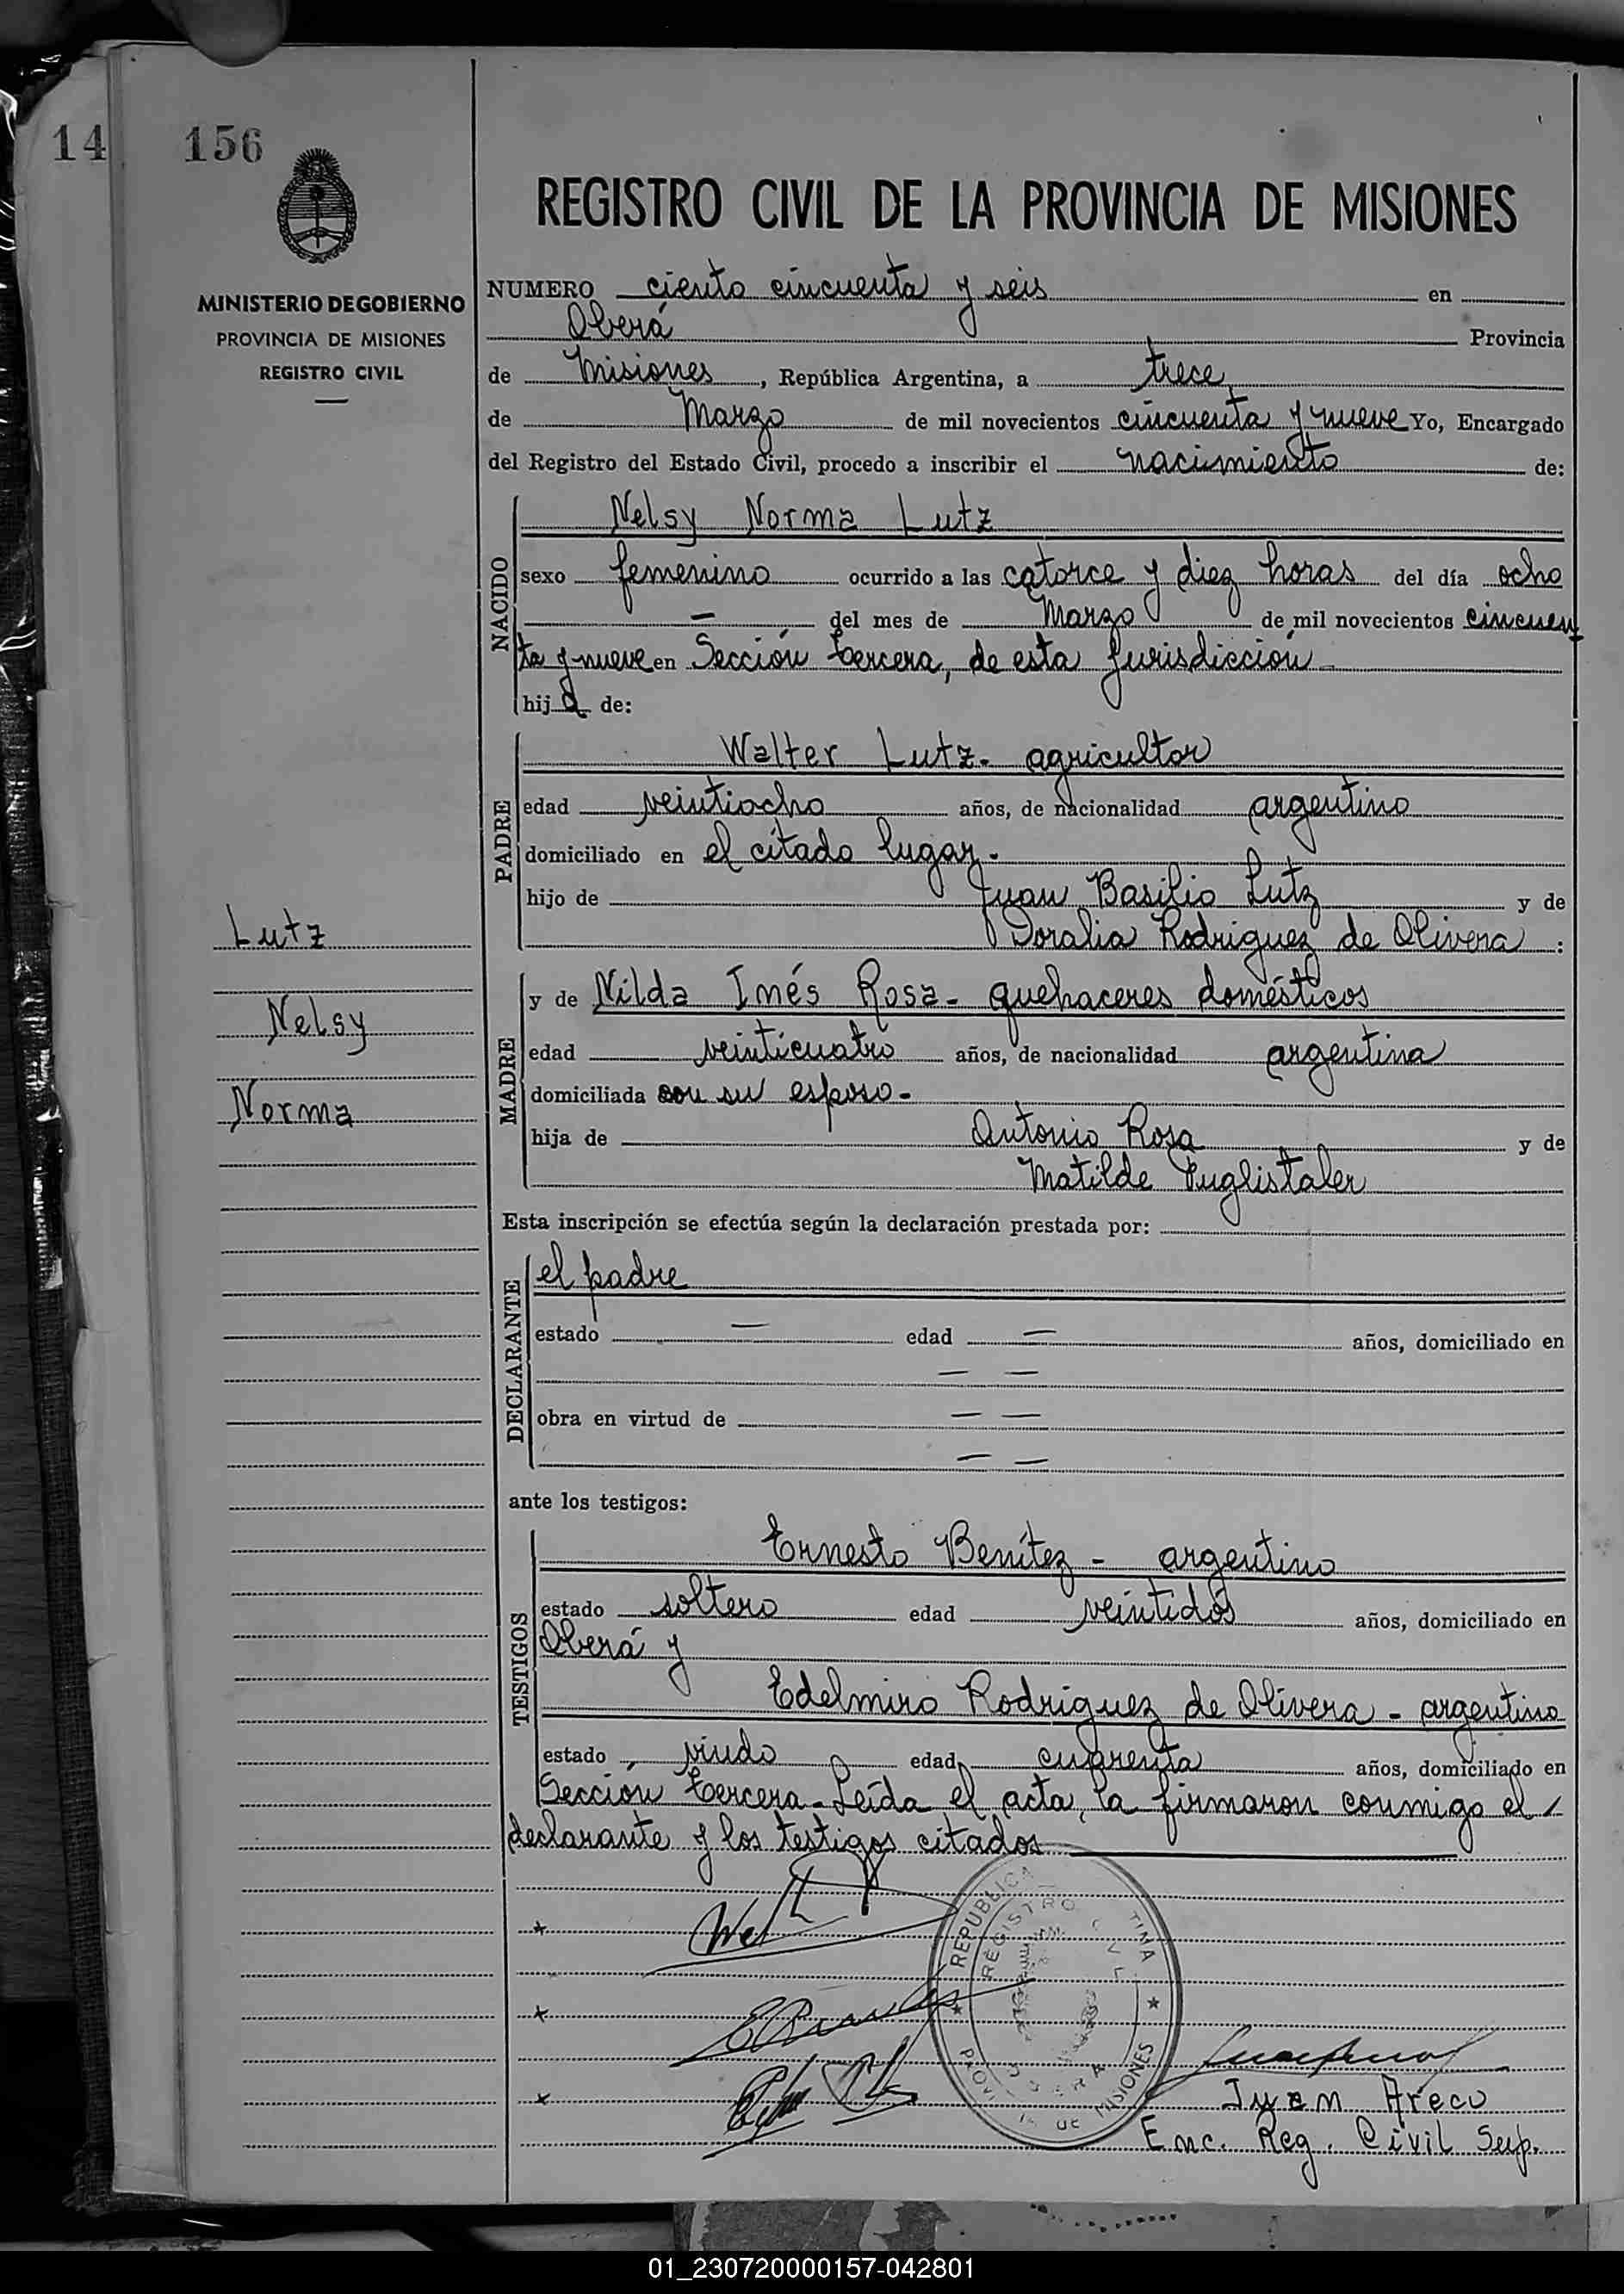 14
156
REGISTRO CIVIL DE LA PROVINCIA DE MISIONES
MINISTERIO DE GOBIERNO
PROVINCIA DE MISIONES
REGISTRO CIVIL
NUMERO ciento cincuenta y seis en
Oberá Provincia
de Misiones, República Argentina, a trece
de Marzo de mil novecientos cincuenta y nueve Yo, Encargado
del Registro del Estado Civil, procedo a inscribir el nacimiento de:
NACIDO
Nelsy Norma Lutz
sexo femenino ocurrido a las catorce y diez horas del día ocho
— del mes de Marzo de mil novecientos cincuen
ta y nueve en Sección tercera, de esta Jurisdicción
hija de:
PADRE
Walter Lutz- agricultor
edad veintiocho años, de nacionalidad argentino
domiciliado en el citado lugar.
hijo de Juan Basilio Lutz y de
Doralia Rodriguez de Olivera :
Lutz
Nelsy
Norma
MADRE
y de Nilda Inés Rosa- quehaceres domésticos
edad veinticuatro años, de nacionalidad argentina
domiciliada con su esposo-
hija de Antonio Rosa y de
Matilde
Esta inscripción se efectúa según la declaración prestada por:
DECLARANTE
el padre
estado — edad — años, domiciliado en
— —
obra en virtud de — —
— —
ante los testigos:
TESTIGOS
Ernesto Benítez - argentino
estado soltero edad veintidós años, domiciliado en
Oberá y
Edelmiro Rodriguez de Olivera - argentino
estado viudo edad cuarenta años, domiciliado en
Sección tercera- Leída el acta, la firmaron conmigo el
declarante y los testigos citados
REPUBLICA TINA
REGISTRO CIVIL
OBERA
DE MISIONES
Juan Areco
Enc. Reg. Civil Sup.
01_230720000157-042801